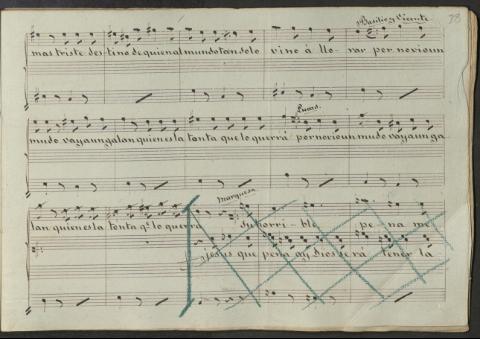 Basilio y Vicente
mas triste destino de quien al mundo tan solo vino á llorar por novio un
Lucas.
mudo vaya un galan quien es la tonta que lo querrá por novio un mudo vaya un ga
Marquesa
lan quien es la tonta q.e lo querrá su horrible pena me
Jesus que pena ay Dios será tener la